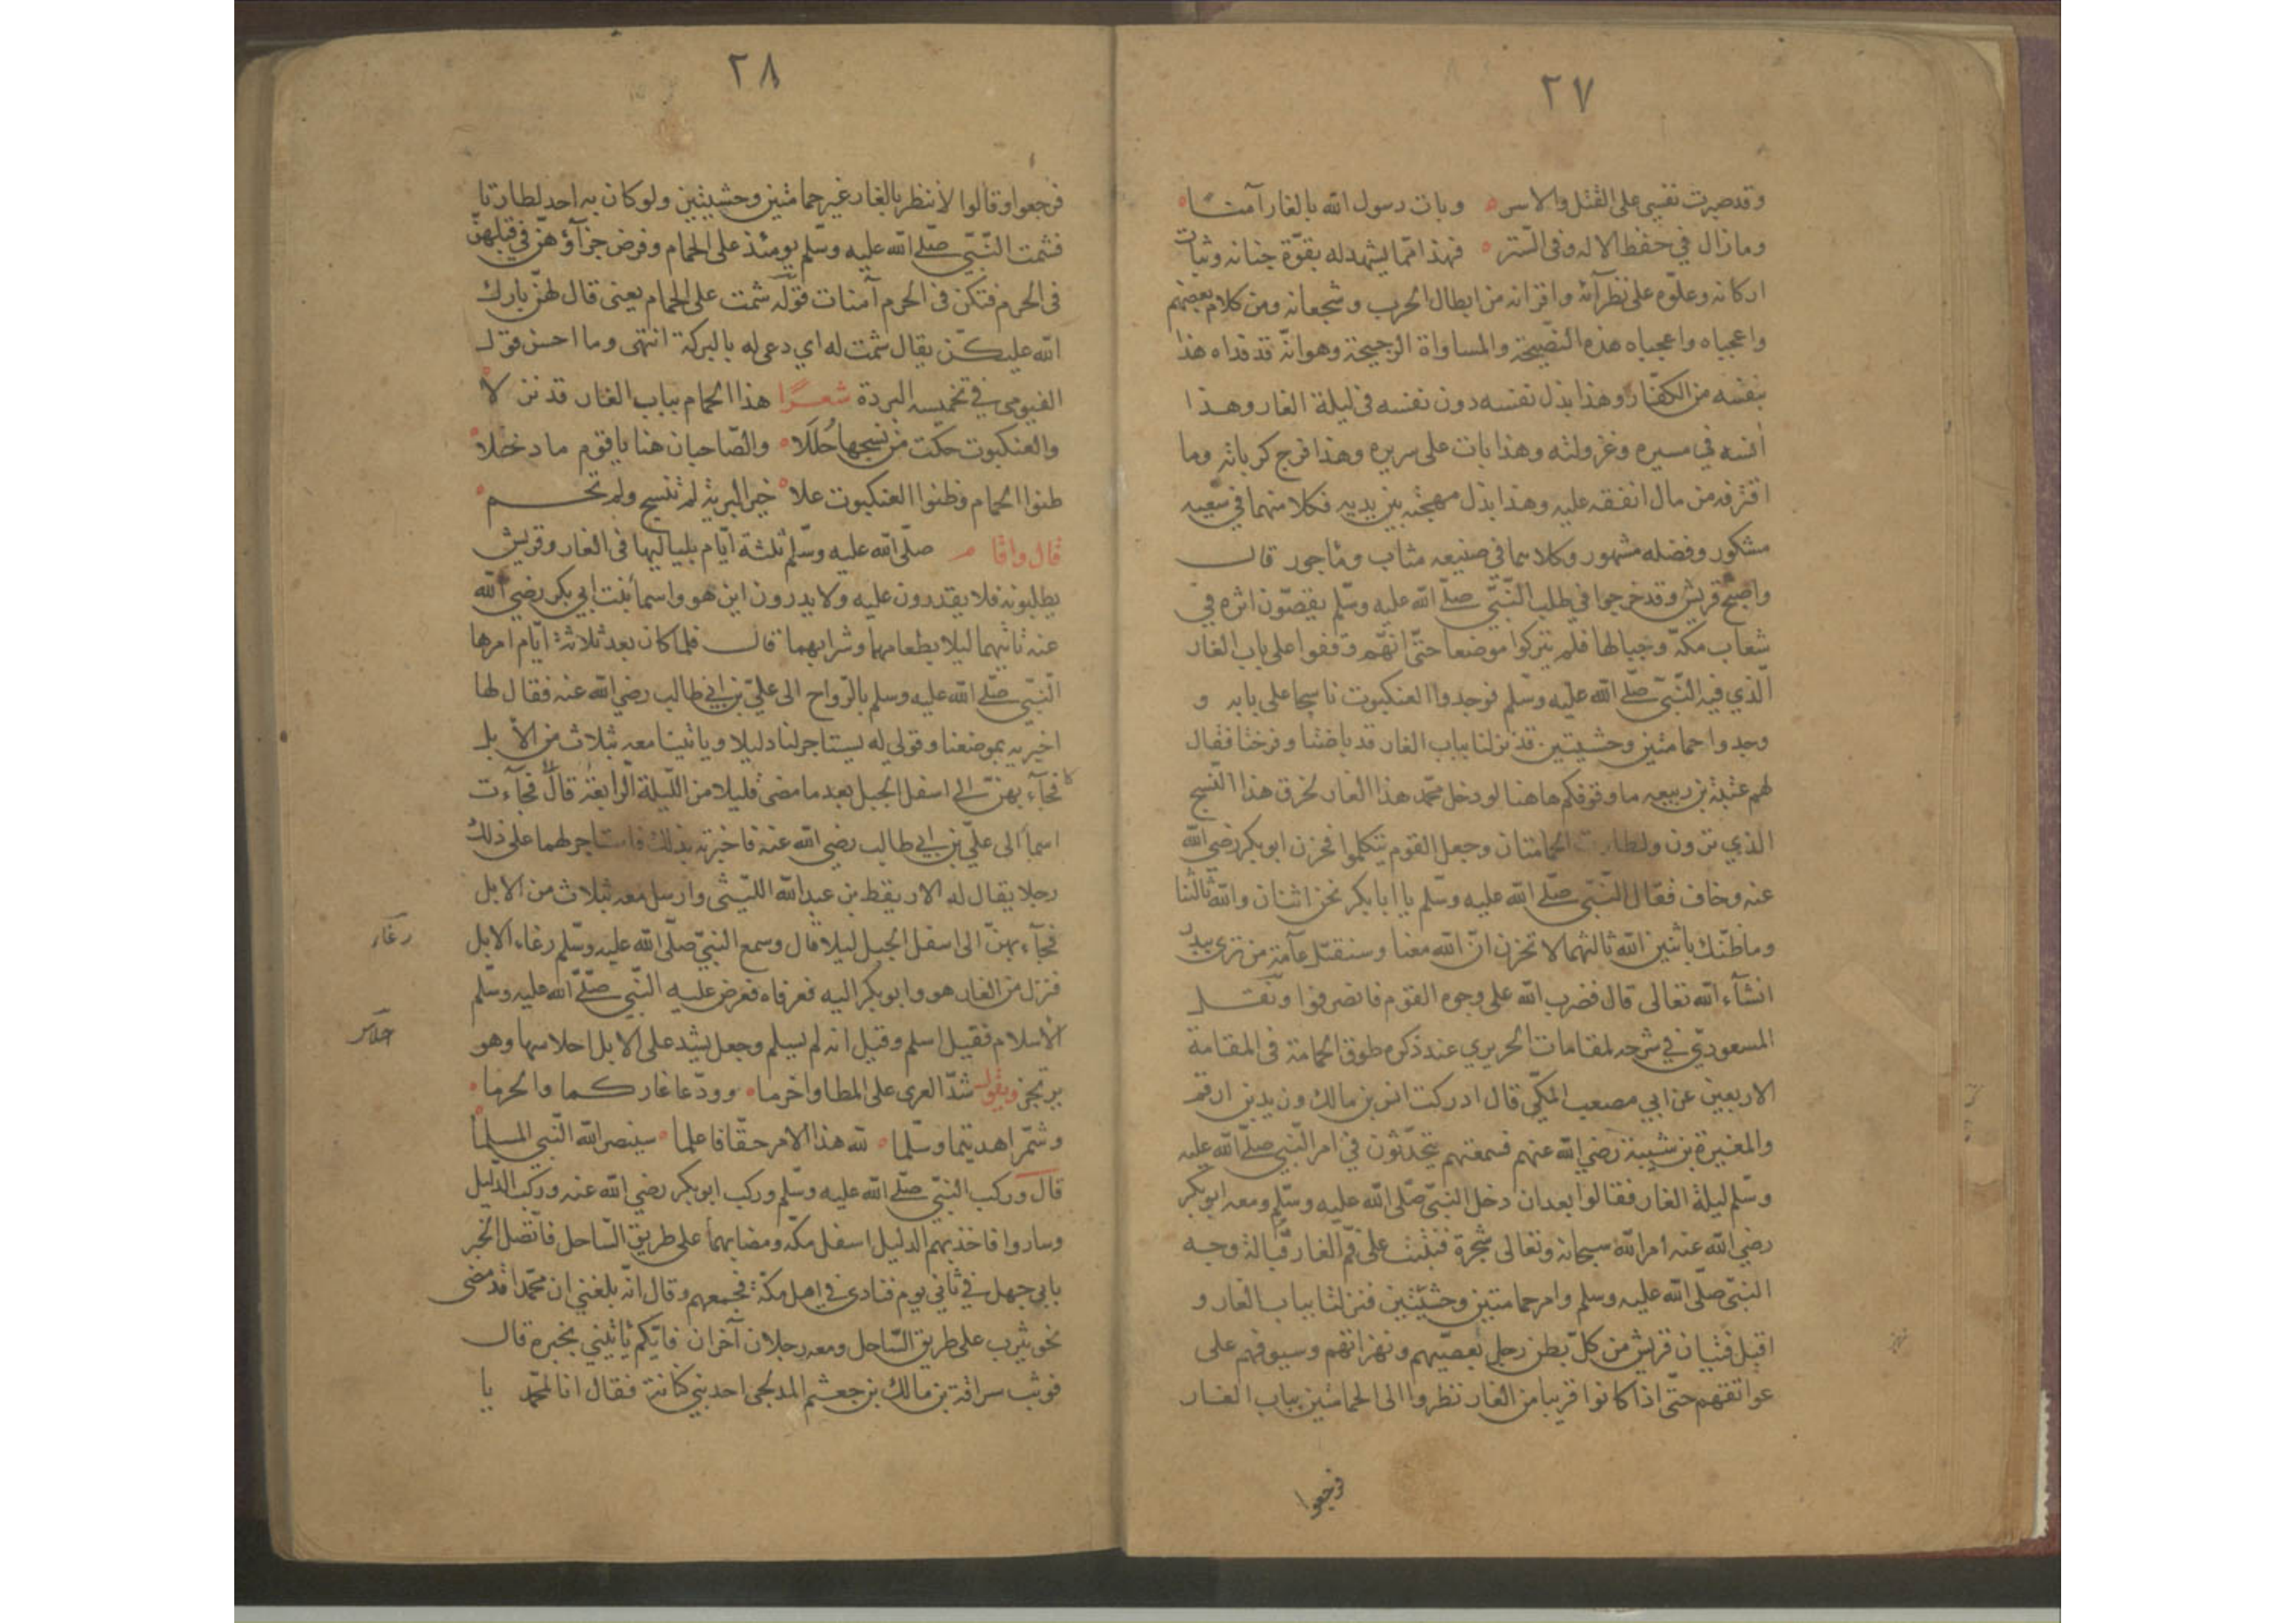 ٢٧
وقد صبرت نفسي على القتل والاسر ه وبات رسول الله بالغار آمنا ه
وما زال في حفظ الاله وفي الستر ه فهذا مما يشهد له بقوّة جنانه وثبات
اركانه وعلوّه على نظرآئه واقرانه من ابطال الحرب وشجعانه ومن كلام بعضهم
واعجباه واعجباه هذه النصيحة والمساواة الرجيحة وهو انّه قد فداه هذا
بنفسه من الكفّار وهذا بذل نفسه دون نفسه في ليلة الغار وهذا
انسه في مسيره وعزولته وهذا بات على سريره وهذا فرج كرباته وما
اقترفه من مال انفقه عليه وهذا بذل مهجته بين يديه فكلا منهما في سعيه
مشكور وفضله مشهور وكلاهما في صنيعه مثاب ومأجور قال
واصبح قريش وقد خرجوا في طلب النّبيّ صلّى الله عليه وسلّم يقصّون اثره في
شعاب مكّة وجبالها فلم يتركوا موضعا حتّى انّهم وقفوا على باب الغار
الّذي فيه النّبيّ صلّى الله عليه وسلّم فوجدوا العنكبوت ناسجا على بابه و
وجدوا حمامتين وحشيتين قد نزلنا بباب الغار قد باضتا وفرختا فقال
لهم عتبة بن ربيعه ما وقوفكم هاهنا لو دخل محمّد هذا الغار لخرق هذا النّسج
الذي ترون ولطارت الحمامتان وجعل القوم يتكلموا فحزن ابو بكر رضي الله
عنه وخاف فقال النّبيّ صلّى الله عليه وسلّم يا ابا بكر نحن اثنان والله ثالثنا
وما ظنّك باثنين الله ثالثهما لا تحزن انّ الله معنا وسنقتل عآمة من ترى ببدر
انشآء الله تعالى قال فضرب الله على وجوه القوم فانصرفوا ونقل
المسعوديّ في شرحه لمقامات الحريري عند ذكره طوق الحمامة في المقامة
الاربعين عن ابي مصعب المكّي قال ادركت انس بن مالك وزيد بن ارقم
والمغيرة بن شيبة رضي الله عنهم فسمعتهم يتحدّثون في امر النّبي صلّى الله عليه
وسلّم ليلة الغار فقالوا بعد ان دخل النبيّ صلّى الله عليه وسلّم ومعه ابو بكر
رضي الله عنه امر الله سبحانه وتعالى شجرة فنبتت على فم الغار قبالة وجه
النبيّ صلّى الله عليه وسلم وامر حمامتين وحشيّتين فنزلتا بباب الغار و
اقبل فتيان قريش من كلّ بطن رجل بعصيّهم وسيوفهم على
عواتقهم حتّى اذا كانوا قريبا من الغار نظروا الى الحمامتين بباب الغار
فرجعوا
٢٨
فرجعوا وقالوا لا ننظر بالغار غير حمامتين وحشيتين ولو كان به احد لطارتا
فشمت النّبيّ صلّى الله عليه وسلّم يومئذ على الحمام وفرض جزآؤهنّ في قتلهنّ
في الحرم فتكن في الحرم آمنات قوله شمت على الحمام يعني قال لهنّ بارك
الله عليكنّ يقال شمت له اي دعى له بالبركة انتهى وما احسن قول
الفيومي في تخميسه البردة شعرًا هذا الحمام بباب الغار قد نزلا ه
والعنكبوت حكت من نسجها حُلَلا ه والصّاحبان هنا يا قوم ما دخلا ه
ظنوا الحمام وظنوا العنكبوت علا ه خير البرية لم تنسج ولم تحم ه
قال واقام صلّى الله عليه وسلّم ثلثة ايّام بلياليها في الغار وقريش
يطلبونه فلا يقدرون عليه ولا يدرون اين هو واسما بنت ابي بكر رضي الله
عنه تاتيهما ليلا بطعامهما وشرابهما قال فلما كان بعد ثلاثة ايّام امرها
النّبيّ صلّى الله عليه وسلم بالرّواح الى عليّ بن ابي طالب رضي الله عنه فقال لها
اخبريه بموضعنا وقولي له يستاجر لنا دليلا وياتينا معه بثلاث من الابل
فجآء بهنّ الى اسفل الجبل بعد ما مضى قليلا من اللّيلة الرابعة قال فجآءت
اسما الى عليّ بن ابي طالب رضي الله عنه فاخبرته بذلك فاستاجر لهما على ذلك
رجلا يقال له الاريقط بن عبد الله اللّيثي وارسل معه بثلاث من الابل
فجآء بهنّ الى اسفل الجبل ليلا قال وسمع النبيّ صلّى الله عليه وسلّم رغاء الابل
رغاء
فنزل من الغار هو وابو بكر اليه فعرفاه فعرض عليه النّبي صلّى الله عليه وسلّم
الاسلام فقيل اسلم وقيل انه لم يسلم وجعل يشد على الابل احلاسها وهو
احلاس
يرتجز ويقول شدّ العرى على المطا واخرما ه وودّعا غاركما والحرما ه
وشمّر اهديتما وسلّما ه لله هذا الامر حقّا فاعلما ه سينصر الله النّبي المسلما ه
قال وركب النّبيّ صلّى الله عليه وسلّم وركب ابو بكر رضي الله عنه وركب الدّليل
وساروا فاخذ بهم الدليل اسفل مكّة ومضا بهما على طريق السّاحل فاتّصل الخبر
بابي جهل في ثاني يوم فنادى في اهل مكّة فجمعهم وقال انّه بلغني ان محمّدا قد مضى
نحو يثرب على طريق السّاحل ومعه رجلان آخران فايّكم ياتيني بخبره قال
فوثب سراقة بن مالك بن جعشم المدلجي احد بني كنانة فقال انا لمحمّد يا